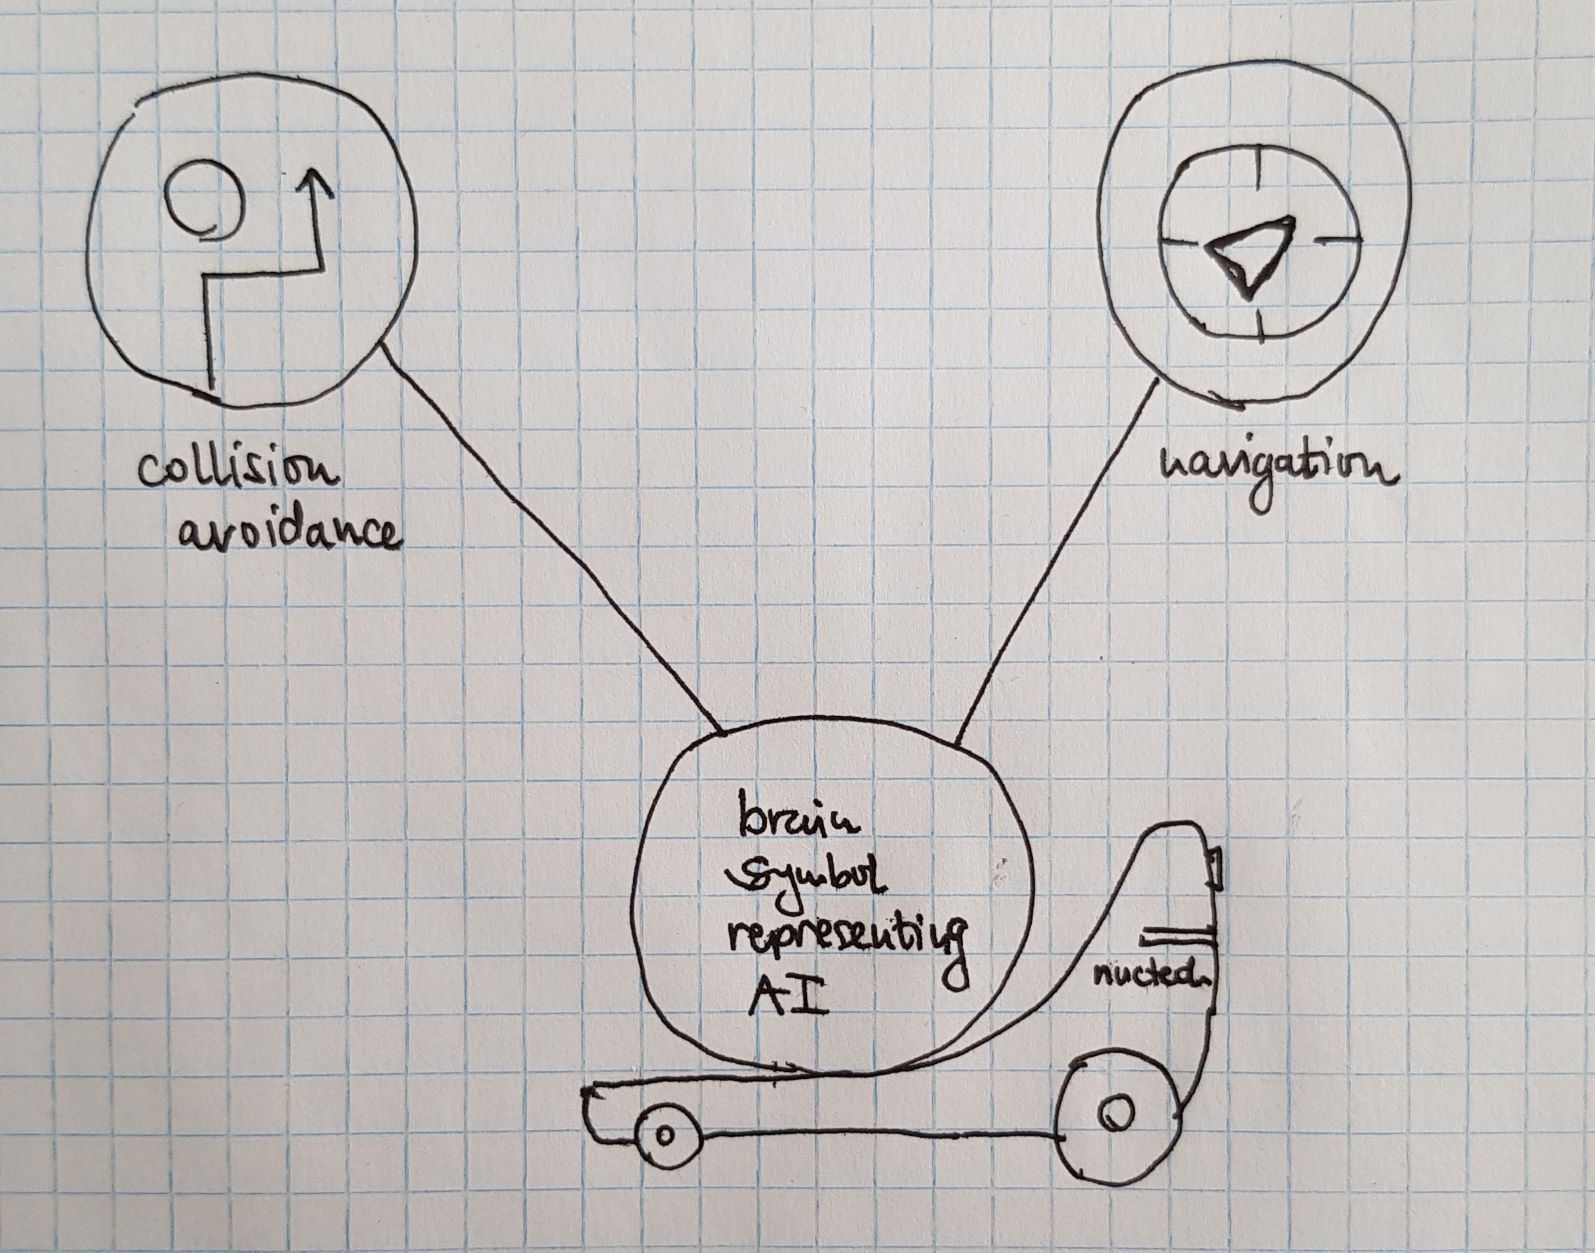 collision
avoidance
navigation
brain
symbol
representing
AI